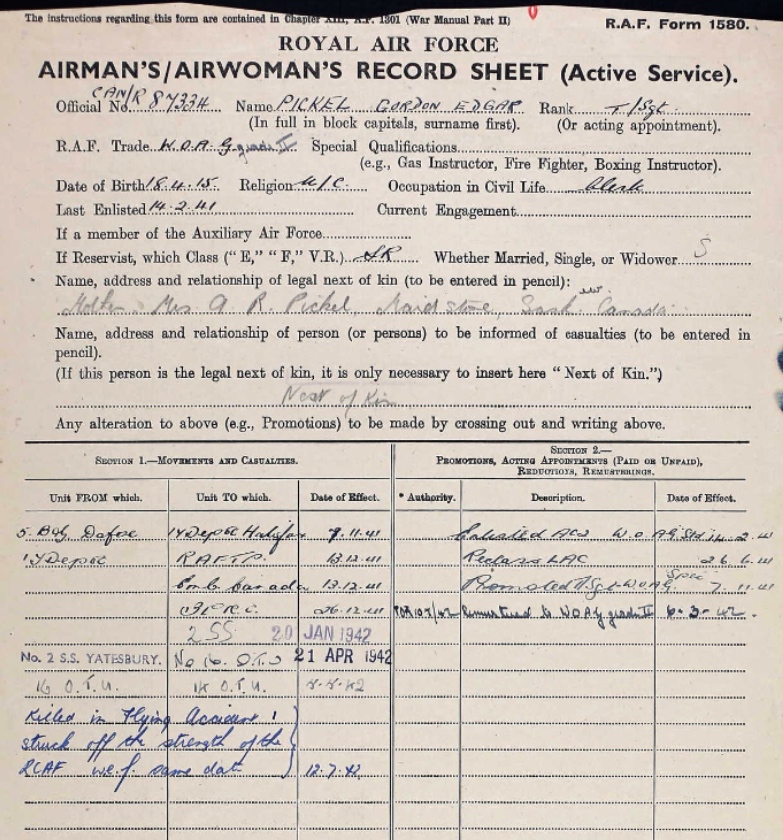 The instructions regarding this form are contained in Chapter XIII, A.P. 1301 (War Manual Part II)
R.A.F. Form 1580.
ROYAL AIR FORCE
AIRMAN'S/AIRWOMAN'S RECORD SHEET (Active Service).
Official No. CAN/R 87334 Name PICKEL GORDON EDGAR Rank T/Sgt
(In full in block capitals, surname first). (Or acting appointment).
R.A.F. Trade W.O.A.G. grade II Special Qualifications
(e.g., Gas Instructor, Fire Fighter, Boxing Instructor).
Date of Birth 18.4.15. Religion U/C. Occupation in Civil Life Clerk
Last Enlisted 14.2.41 Current Engagement
If a member of the Auxiliary Air Force
If Reservist, which Class ("E," "F," V.R.) SR Whether Married, Single, or Widower S
Name, address and relationship of legal next of kin (to be entered in pencil):
Mother. Mrs A. R. Pickel, Maidstone, Sask. Canada
Name, address and relationship of person (or persons) to be informed of casualties (to be entered in
pencil).
(If this person is the legal next of kin, it is only necessary to insert here "Next of Kin.")
Next of Kin
Any alteration to above (e.g., Promotions) to be made by crossing out and writing above.
SECTION 1.—MOVEMENTS AND CASUALTIES.
SECTION 2.—
PROMOTIONS, ACTING APPOINTMENTS (PAID OR UNPAID),
REDUCTIONS, REMUSTERINGS.
Unit FROM which. Unit TO which. Date of Effect. * Authority. Description. Date of Effect.
5. B&G Dafoe 1Y Depot Halifax 9.11.41 Enlisted AC2 W.O.AG. Std 14.2.41
1Y Depot R.A.F.T.P. 13.12.41 Reclass LAC 26.6.41
Emb. Canada 13.12.41 Promoted T/Sgt WOAG Spec 7.11.41
R.C. 26.12.41 Remustered to WOAG grade II 6-3-42.
2 SS 20 JAN 1942
No. 2 S.S. YATESBURY. No 16. O.T.U 21 APR 1942
16 O.T.U. 14 O.T.U.
Killed in Flying Accident
struck off the strength of the
RCAF w.e.f. same date 12.7.42